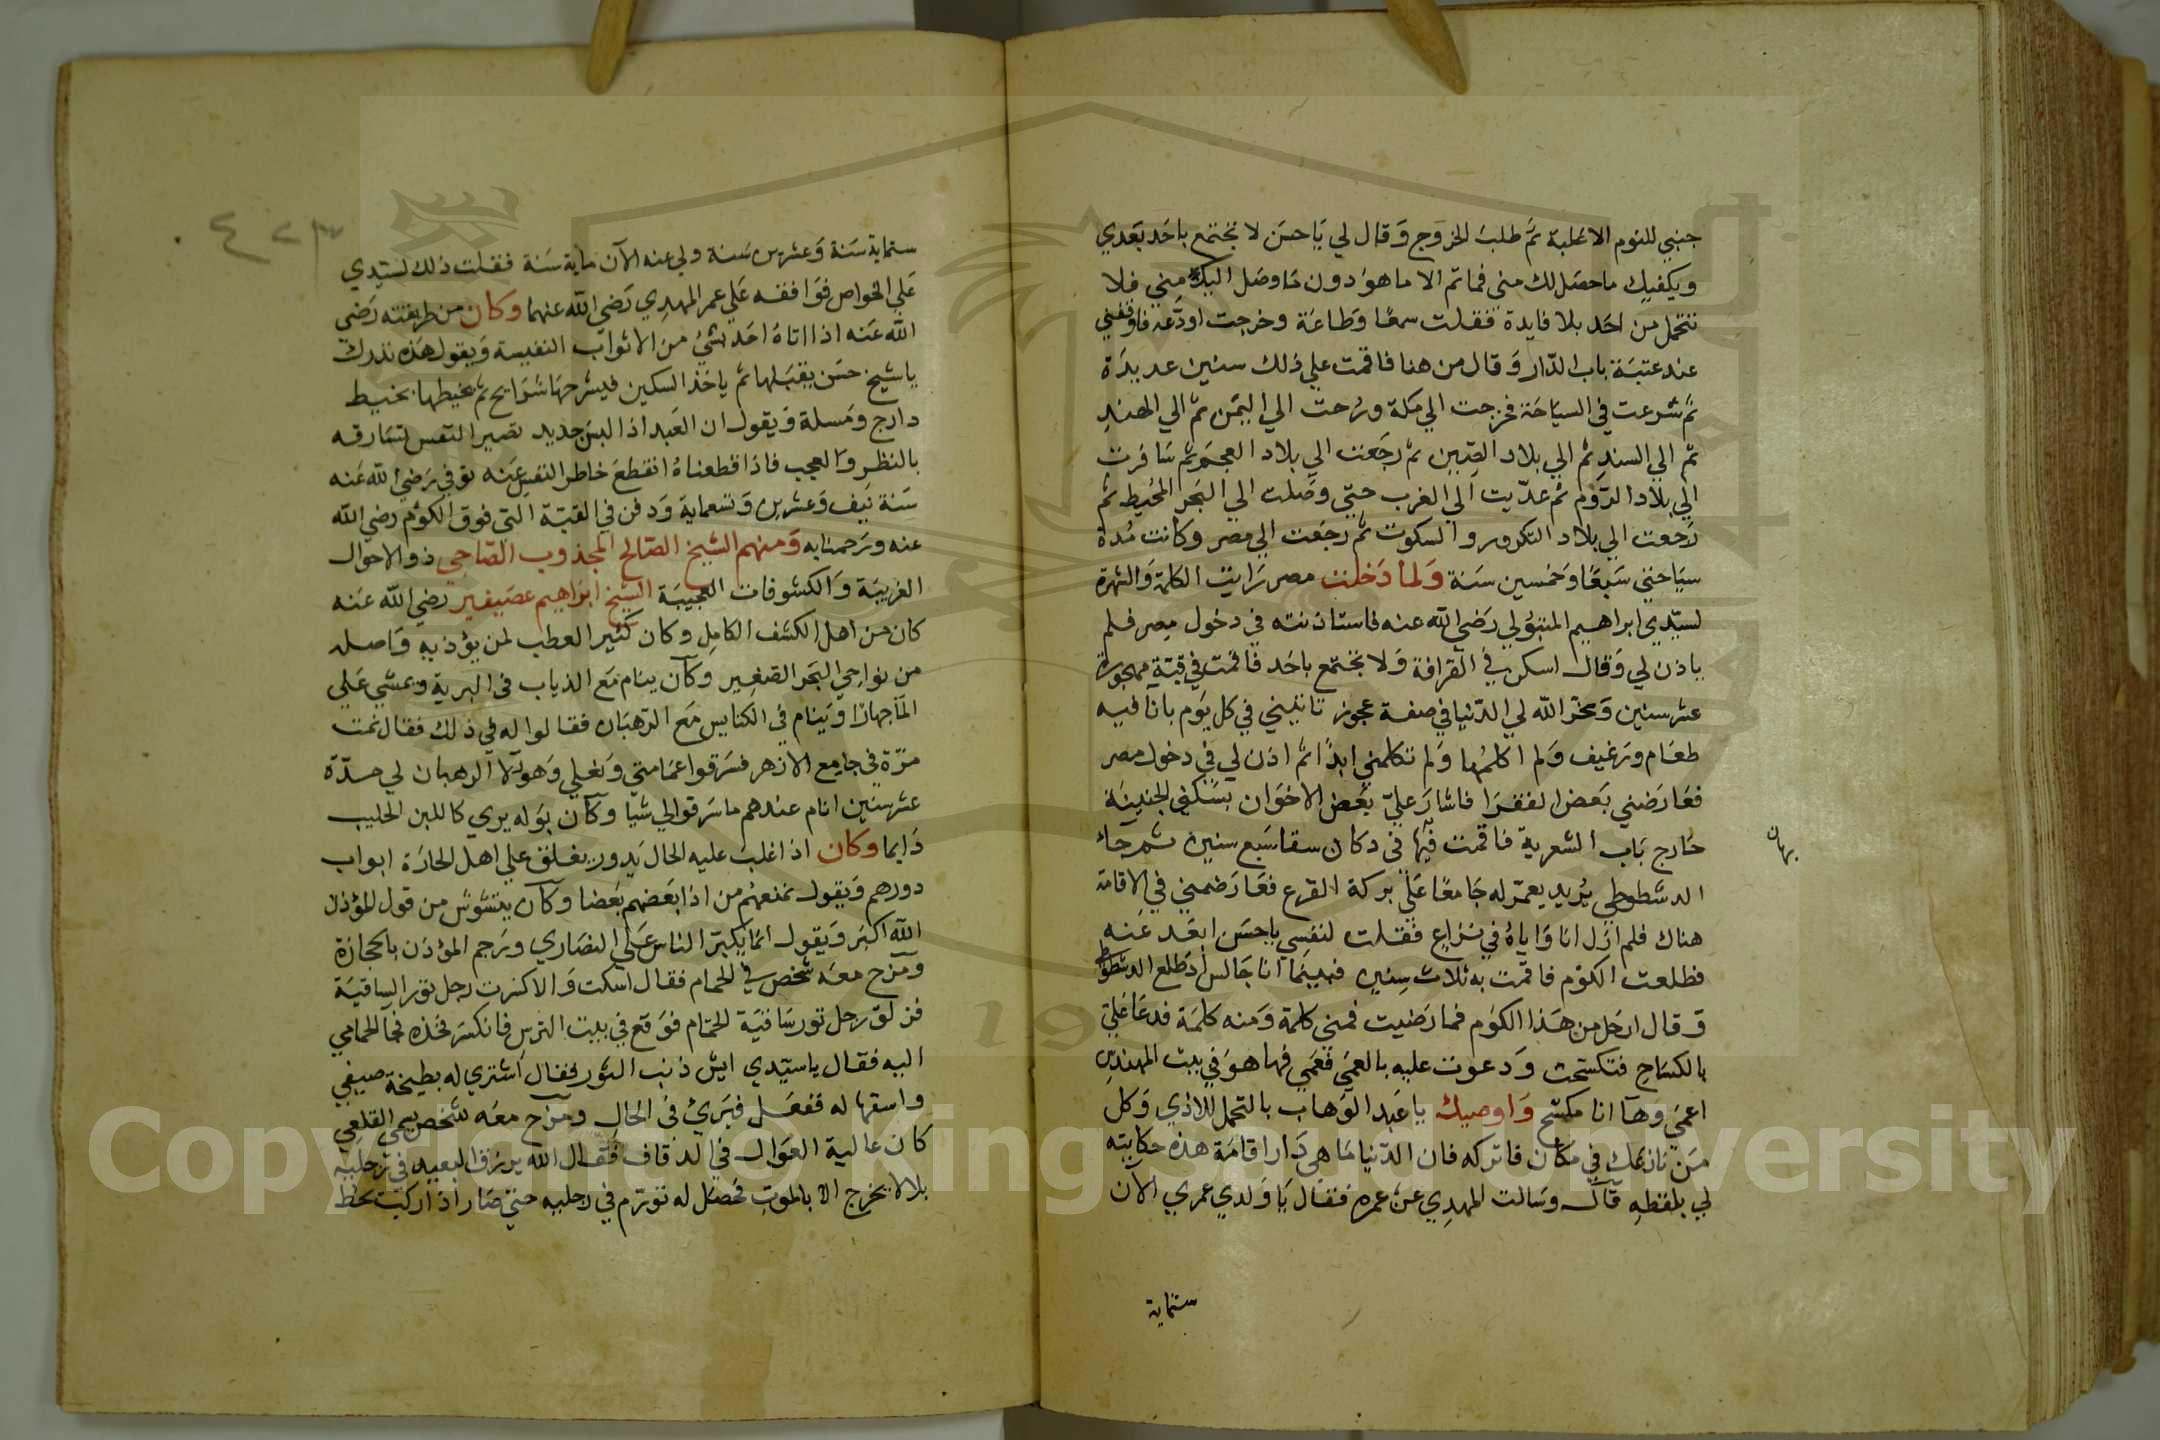 جنبي للنوم الا غلبة ثم طلب الخروج وقال لي يا حسن لا تجتمع باحد بعدي
ويكفيك ما حصل لك مني فما تم الا ما هو دون ما وصل اليك مني فلا
تتحمل من احد بلا فايدة فقلت سمعًا وطاعة وخرجت اودعه فاوقفني
عند عتبة باب الدار وقال من هنا فاقمت علي ذلك سنين عديدة
ثم شرعت في السياحة فخرجت الي مكة ورحت الي اليمن ثم الي الهند
ثم الي السند ثم الي بلاد الصين ثم رجعت الي بلاد العجم ثم سافرت
الي بلاد الروم ثم عديت الي الغرب حتي وصلت الي البحر المحيط ثم
رجعت الي بلاد التكرور والسكوت ثم رجعت الي مصر وكانت مدة
سياحتي سبعًا وخمسين سنة ولما دخلت مصر رايت الكلمة والشهرة
لسيدي ابراهيم المتبولي رضي الله عنه فاستاذنته في دخول مصر فلم
ياذن لي وقال اسكن في القرافة ولا تجتمع باحد فاقمت في قبة مهجورة
عشر سنين وسخر الله لي الدنيا في صفة عجوز تاتيني في كل يوم بانا فيه
طعام ورغيف ولم اكلمها ولم تكلمني ابدًا ثم اذن لي في دخول مصر
فعارضني بعض الفقرا فاشار علي بعض الاخوان بسكني الجنينة
خارج باب الشعرية فاقمت فيها في دكان سقا سبع سنين ثم جاء
الدشطوطي يريد يعمر له جامعًا علي بركة القرع فعارضني في الاقامة
هناك فلم ازل انا واياه في نزاع فقلت لنفسي يا حسن ابعد عنه
فطلعت الكوم فاقمت به ثلاث سنين فبينما انا جالس اذ طلع الدشطوطي
وقال ارحل من هذا الكوم فما رضيت فمني كلمة ومنه كلمة فدعا علي
بالكساح فتكسحت ودعوت عليه بالعمي فعمي فها هو في بيت المهندس
اعمي وها انا مكسح واوصيك يا عبد الوهاب بالتحمل للاذي وكل
من نازعك في مكان فاتركه فان الدنيا ما هي دار اقامة هذه حكايته
لي بلفظه قال وسالت المهدي عن عمره فقال يا ولدي عمري الآن
ستماية
ستماية سنة وعشرين سنة ولي عنه الآن ماية سنة فقلت ذلك لسيدي
علي الخواص فوافقه علي عمر المهدي رضي الله عنهما وكان من طريقته رضي
الله عنه اذا اتاه احد بشئ من الاثواب النفيسة ويقول هذه نذرك
يا شيخ حسن يقبلها ثم ياخذ السكين فيشرحها شرايح ثم يخيطها بخيط
دارج ومسلة ويقول ان العبد اذا لبس جديد تصير النفس تسارقه
بالنظر والعجب فاذا قطعناه انقطع خاطر النفس عنه توفي رضي الله عنه
سنة نيف وعشرين وتسعماية ودفن في القبة التي فوق الكوم رضي الله
عنه ورحمنا به ومنهم الشيخ الصالح المجذوب الصاحي ذو الاحوال
الغريبة والكشوفات العجيبة الشيخ ابراهيم عصيفير رضي الله عنه
كان من اهل الكشف الكامل وكان كثير العطب لمن يؤذيه واصله
من نواحي البحر الصغير وكان ينام مع الذياب في البرية ويمشي علي
الما جهارًا وينام في الكنايس مع الرهبان فقالوا له في ذلك فقال نمت
مرة في جامع الازهر فسرقوا عمامتي ونعلي وهولآ الرهبان لي مدة
عشر سنين انام عندهم ما سرقوا لي شيا وكان بوله يري كاللبن الحليب
دايما وكان اذا غلب عليه الحال يدور يغلق علي اهل الحارة ابواب
دورهم ويقول نمنعهم من اذا بعضهم بعضا وكان يتشوش من قول المؤذن
الله اكبر ويقول انما يكبر الناس علي النصاري ورجم المؤذن بالحجارة
ومزح معه شخص في الحمام فقال اسكت والا كسرت رجل ثور الساقية
فزلق رجل ثور ساقية الحمام فوقع في بيت الترس فانكسر فخذه فجا الحمامي
اليه فقال يا سيدي ايش ذنب الثور فقال اشتري له بطيخة صيفي
واسقها له ففعل فبرئ في الحال ومزح معه شخص يسمي القلعي
كان عالية العوال في الدقاف فقال الله يرزق البعيد في رجليه
بلا لا يخرج الا بالموت فحصل له تورم في رجليه حتي صار اذا ركب تحط